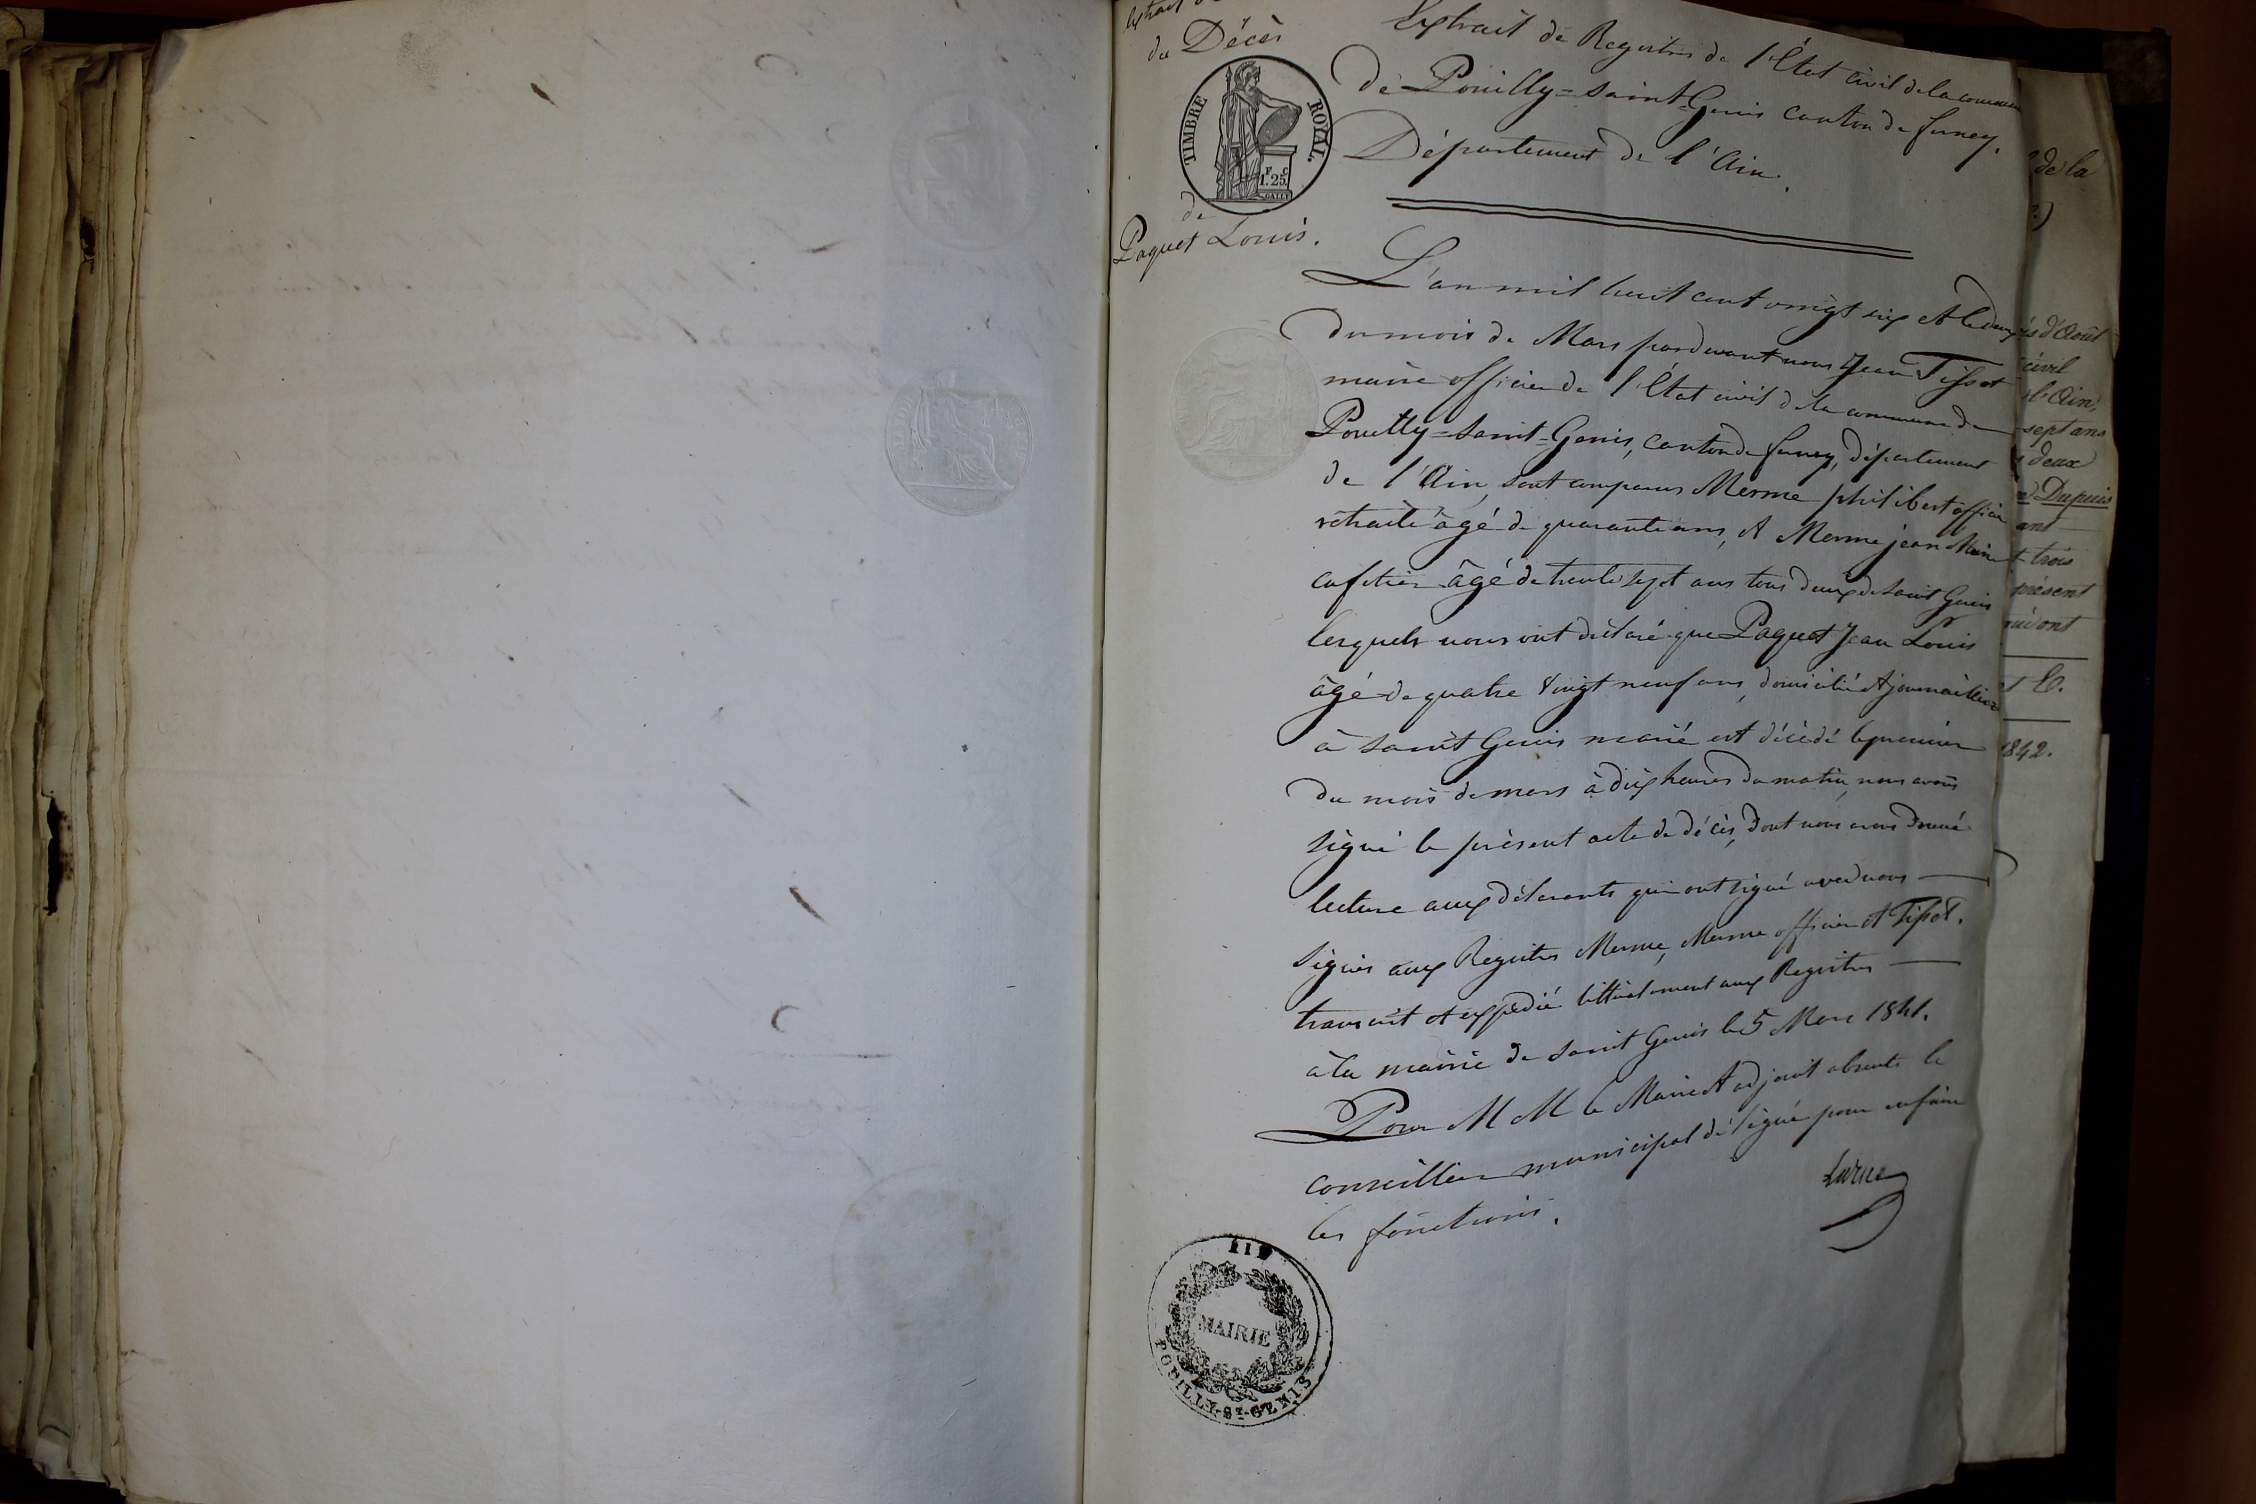 du Décès
TIMBRE ROYAL.
F C
1.25.
de
Paquet Louis.
Extrait de Registres de l'État civil de la commune
de Pouilly=Saint=Genis canton de ferney.
Département de l'Ain.
L'an mil huit cent vingt six et le deux
du mois de Mars pardevant nous Jean Tissot
maire officier de l'État civil de la commune de
Pouilly=Saint=Genis, canton de ferney, département
de l'Ain, sont comparus Merme philibert officier
retraité âgé de quarante ans, et Merme jean Marie
cafetier âgé de trente sept ans tous deux de Saint Genis
lesquels nous ont déclaré que Paquet Jean Louis
âgé de quatre vingt neuf ans, domicilié et journaillier
à Saint Genis marié est décédé le premier
du mois de mars à dix heures du matin, nous avons
signé le présent acte de décès, dont nous avons donné
lecture aux déclarants qui ont signé avec nous
Signés aux Registres Merme, Merme officier et Tissot.
transcrit et expédié littéralement aux Registres
à la mairie de Saint Genis le 5 Mars 1841.
Pour M M le Maire et adjoint absents le
conseiller municipal délégué pour enfaire
les fonctions.
MAIRIE
POUILLY-ST-GENIS
de la
d'Août
civil
l'Ain,
sept ans
deux
Dupuis
ans
trois
présent
ont
1842.